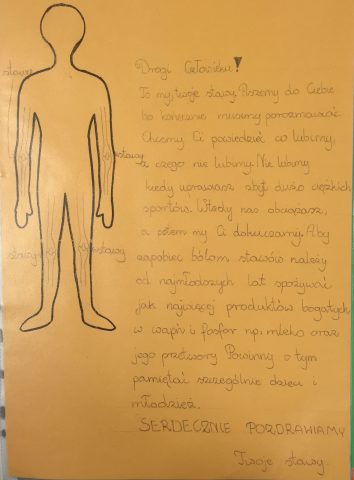 Drogi Człowieku!
To my, twoje stawy. Piszemy do Ciebie
bo koniecznie musimy porozmawiać.
Chcemy Ci powiedzieć co lubimy,
a czego nie lubimy. Nie lubimy
kiedy uprawiasz zbyt dużo ciężkich
sportów. Wtedy nas obciążasz,
a potem my Ci dokuczamy. Aby
zapobiec bólom stawów należy
od najmłodszych lat spożywać
jak najwięcej produktów bogatych
w wapń i fosfor np: mleko oraz
jego przetwory. Powinny o tym
pamiętać szczególnie dzieci i
młodzież.
SERDECZNIE POZDRAWIAMY
Twoje stawy.
stawy
stawy
stawy
stawy